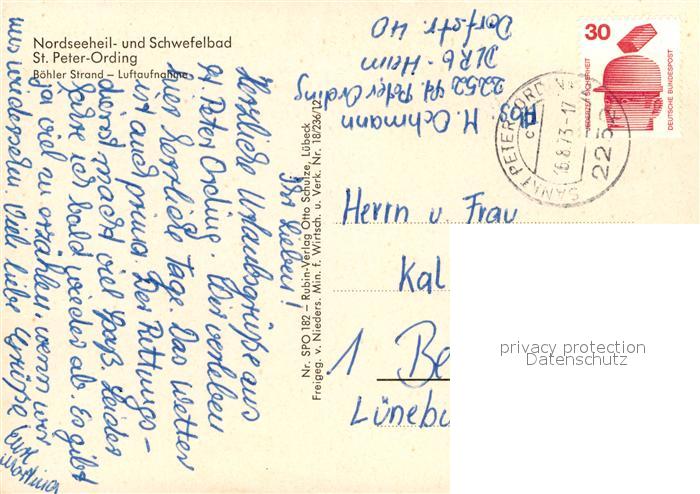 Nordseeheil- und Schwefelbad
St. Peter-Ording
Böhler Strand – Luftaufnahme
Ihr Lieben!
Herzliche Urlaubsgrüße aus
St. Peter Ording. Wir verleben
hier herrliche Tage. Das Wetter
ist auch prima. Der Rettungs-
dienst macht viel Spaß. Leider
fahre ich bald wieder ab. Es gibt
ja viel zu erzählen, wenn wir
uns wiedersehen. Viele liebe Grüße Eure
Martina
Nr. SPO 182 – Rubin-Verlag Otto Schulze, Lübeck
Freigeg. v. Nieders. Min. f. Wirtsch. u. Verk. Nr. 18/236/12
Abs. M. Ochmann
2252 St. Peter Ording
DLRG-Heim
Dorfstr. 40
30
JEDERZEIT SICHERHEIT
DEUTSCHE BUNDESPOST
SANKT PETER-ORDING
16.8.73-17
2252
Herrn u. Frau
Kal
1 Be
Lünebu
privacy protection
Datenschutz